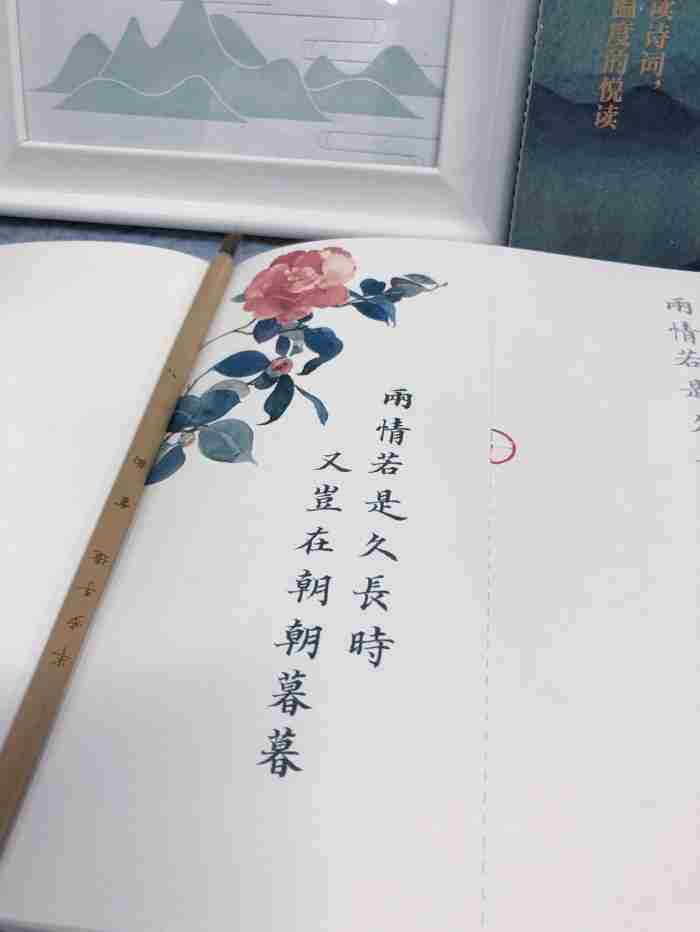 读诗词，
温度的悦读
兩情若是
兩情若是久長時
又豈在朝朝暮暮